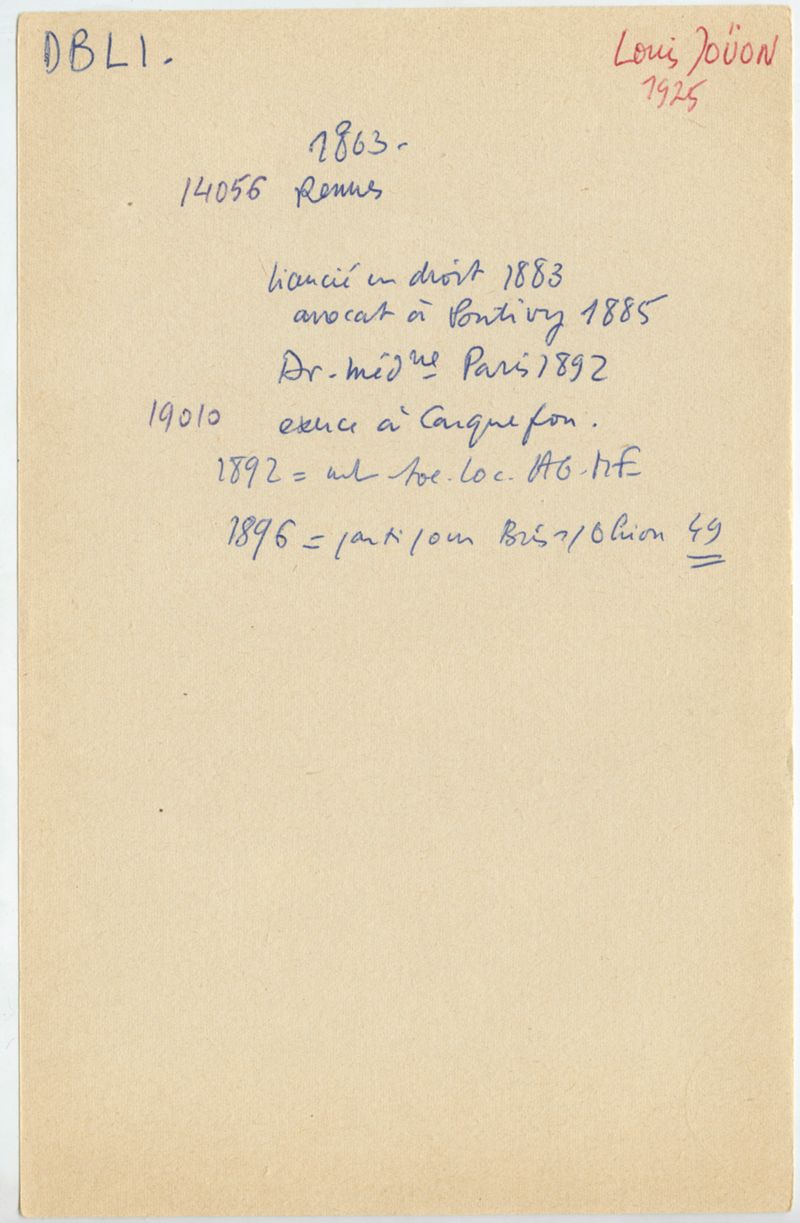 DBL1.
Louis JOÜON
1925
1863.
14056 Rennes
licencié en droit 1883
avocat à Pontivy 1885
Dr. médne Paris 1892
19010 exerce à Carquefou.
1892 = Soc. Loc. AG. MF
1896 = parti pour Bris s/ 49